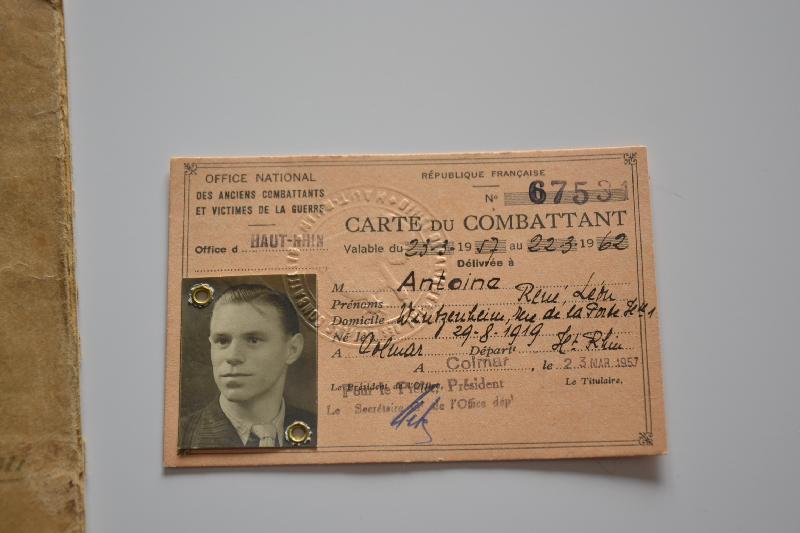 OFFICE NATIONAL
DES ANCIENS COMBATTANTS
ET VICTIMES DE LA GUERRE
Office d HAUT-RHIN
RÉPUBLIQUE FRANÇAISE
N° 67531
CARTE DU COMBATTANT
Valable du 23-3 1957 au 22 3 1962
Délivrée à
M Antoine
Prénoms René, Léon
Domicile Wintzenheim, rue de la Porte Hte 1
Né le 29-8-1919
A Colmar Départt Ht Rhin
A Colmar, le 23 MAR 1957
Le Président de l'Office, Le Titulaire,
Pour le Préfet, Président
Le Secrétaire de l'Office dépt